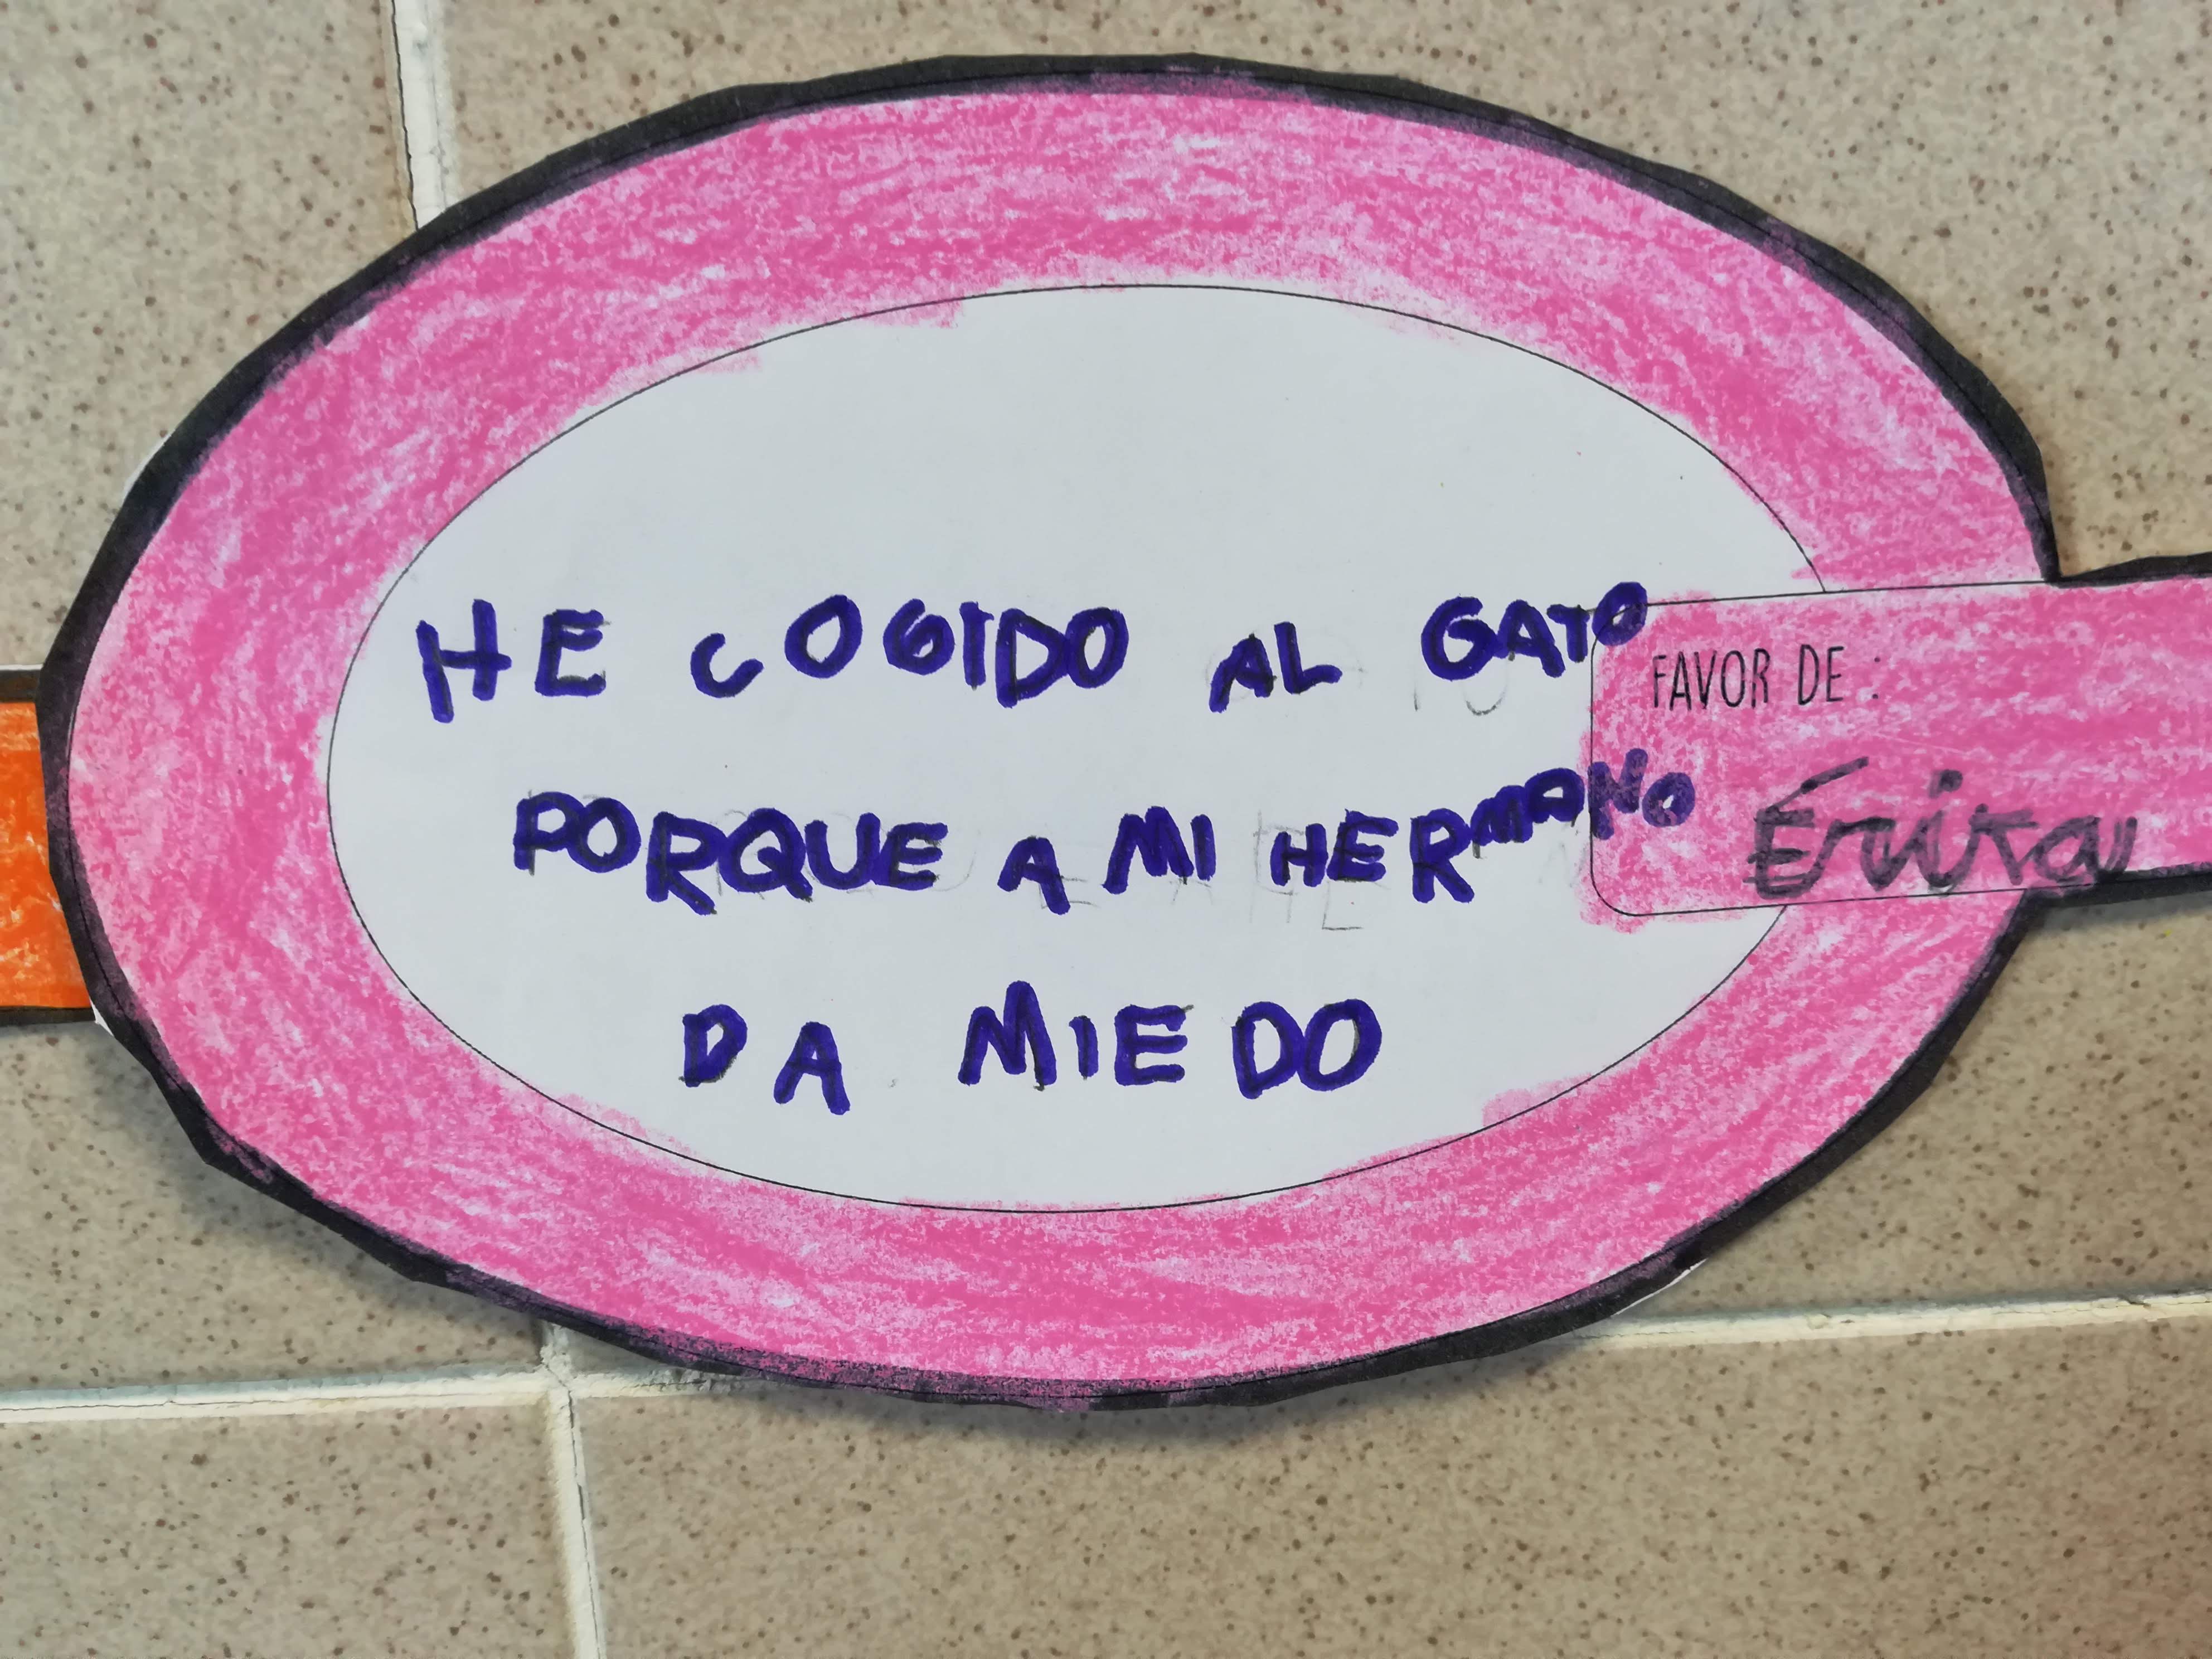 HE COGIDO AL GATO
PORQUE A MI HERMANO
DA MIEDO
FAVOR DE :